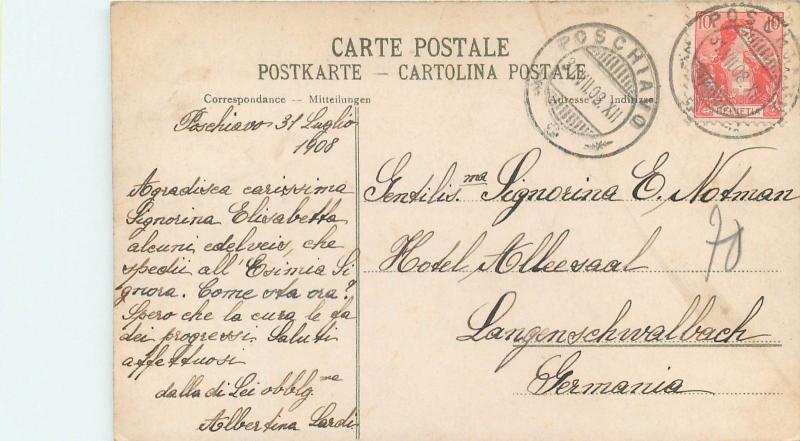 CARTE POSTALE
POSTKARTE — CARTOLINA POSTALE
Correspondance — Mitteilungen
Adresse — Indirizzo
POSCHIAVO
10 10
HELVETIA
Poschiavo 31 Luglio
1908
Agradisca carissima
Signorina Elisabetta
alcuni edelveis, che
spedii all'Esimia Si
gnora. Come sta ora?
Spero che la cura le fa
dei progressi. Saluti
affettuosi
dalla di Lei obblg.ma
Albertina Lardi
Gentilis.ma Signorina E. Notman
Hotel Alleesaal
Langenschwalbach
Germania
70